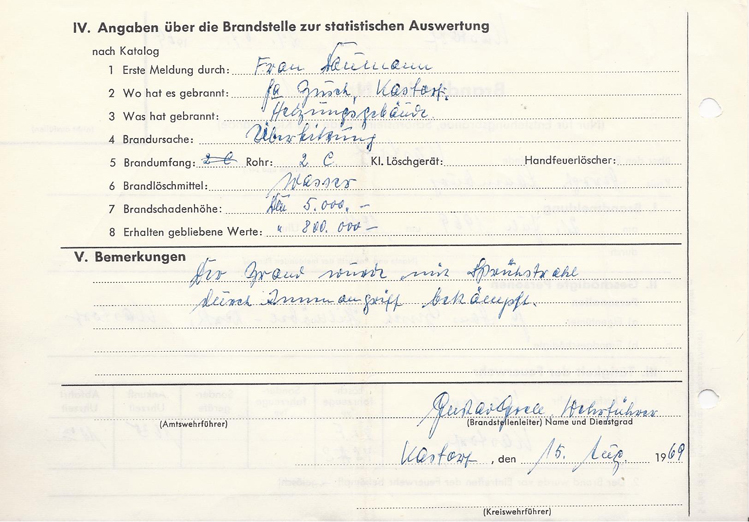 IV. Angaben über die Brandstelle zur statistischen Auswertung
nach Katalog
1 Erste Meldung durch: Frau Naumann
2 Wo hat es gebrannt: fa Kastorf.
3 Was hat gebrannt: Heizungsgebäude.
4 Brandursache: Überhitzung
5 Brandumfang: Rohr: 2 C. Kl. Löschgerät: Handfeuerlöscher:
6 Brandlöschmittel: Wasser
7 Brandschadenhöhe: 5.000.-
8 Erhalten gebliebene Werte: " 800.000-
V. Bemerkungen
Der Brand wurde mit Sprühstrahl
durch Innenangriff bekämpft.
(Amtswehrführer)
Gustav Wehrführer
(Brandstellenleiter) Name und Dienstgrad
Kastorf, den 15. Aug. 1969
(Kreiswehrführer)